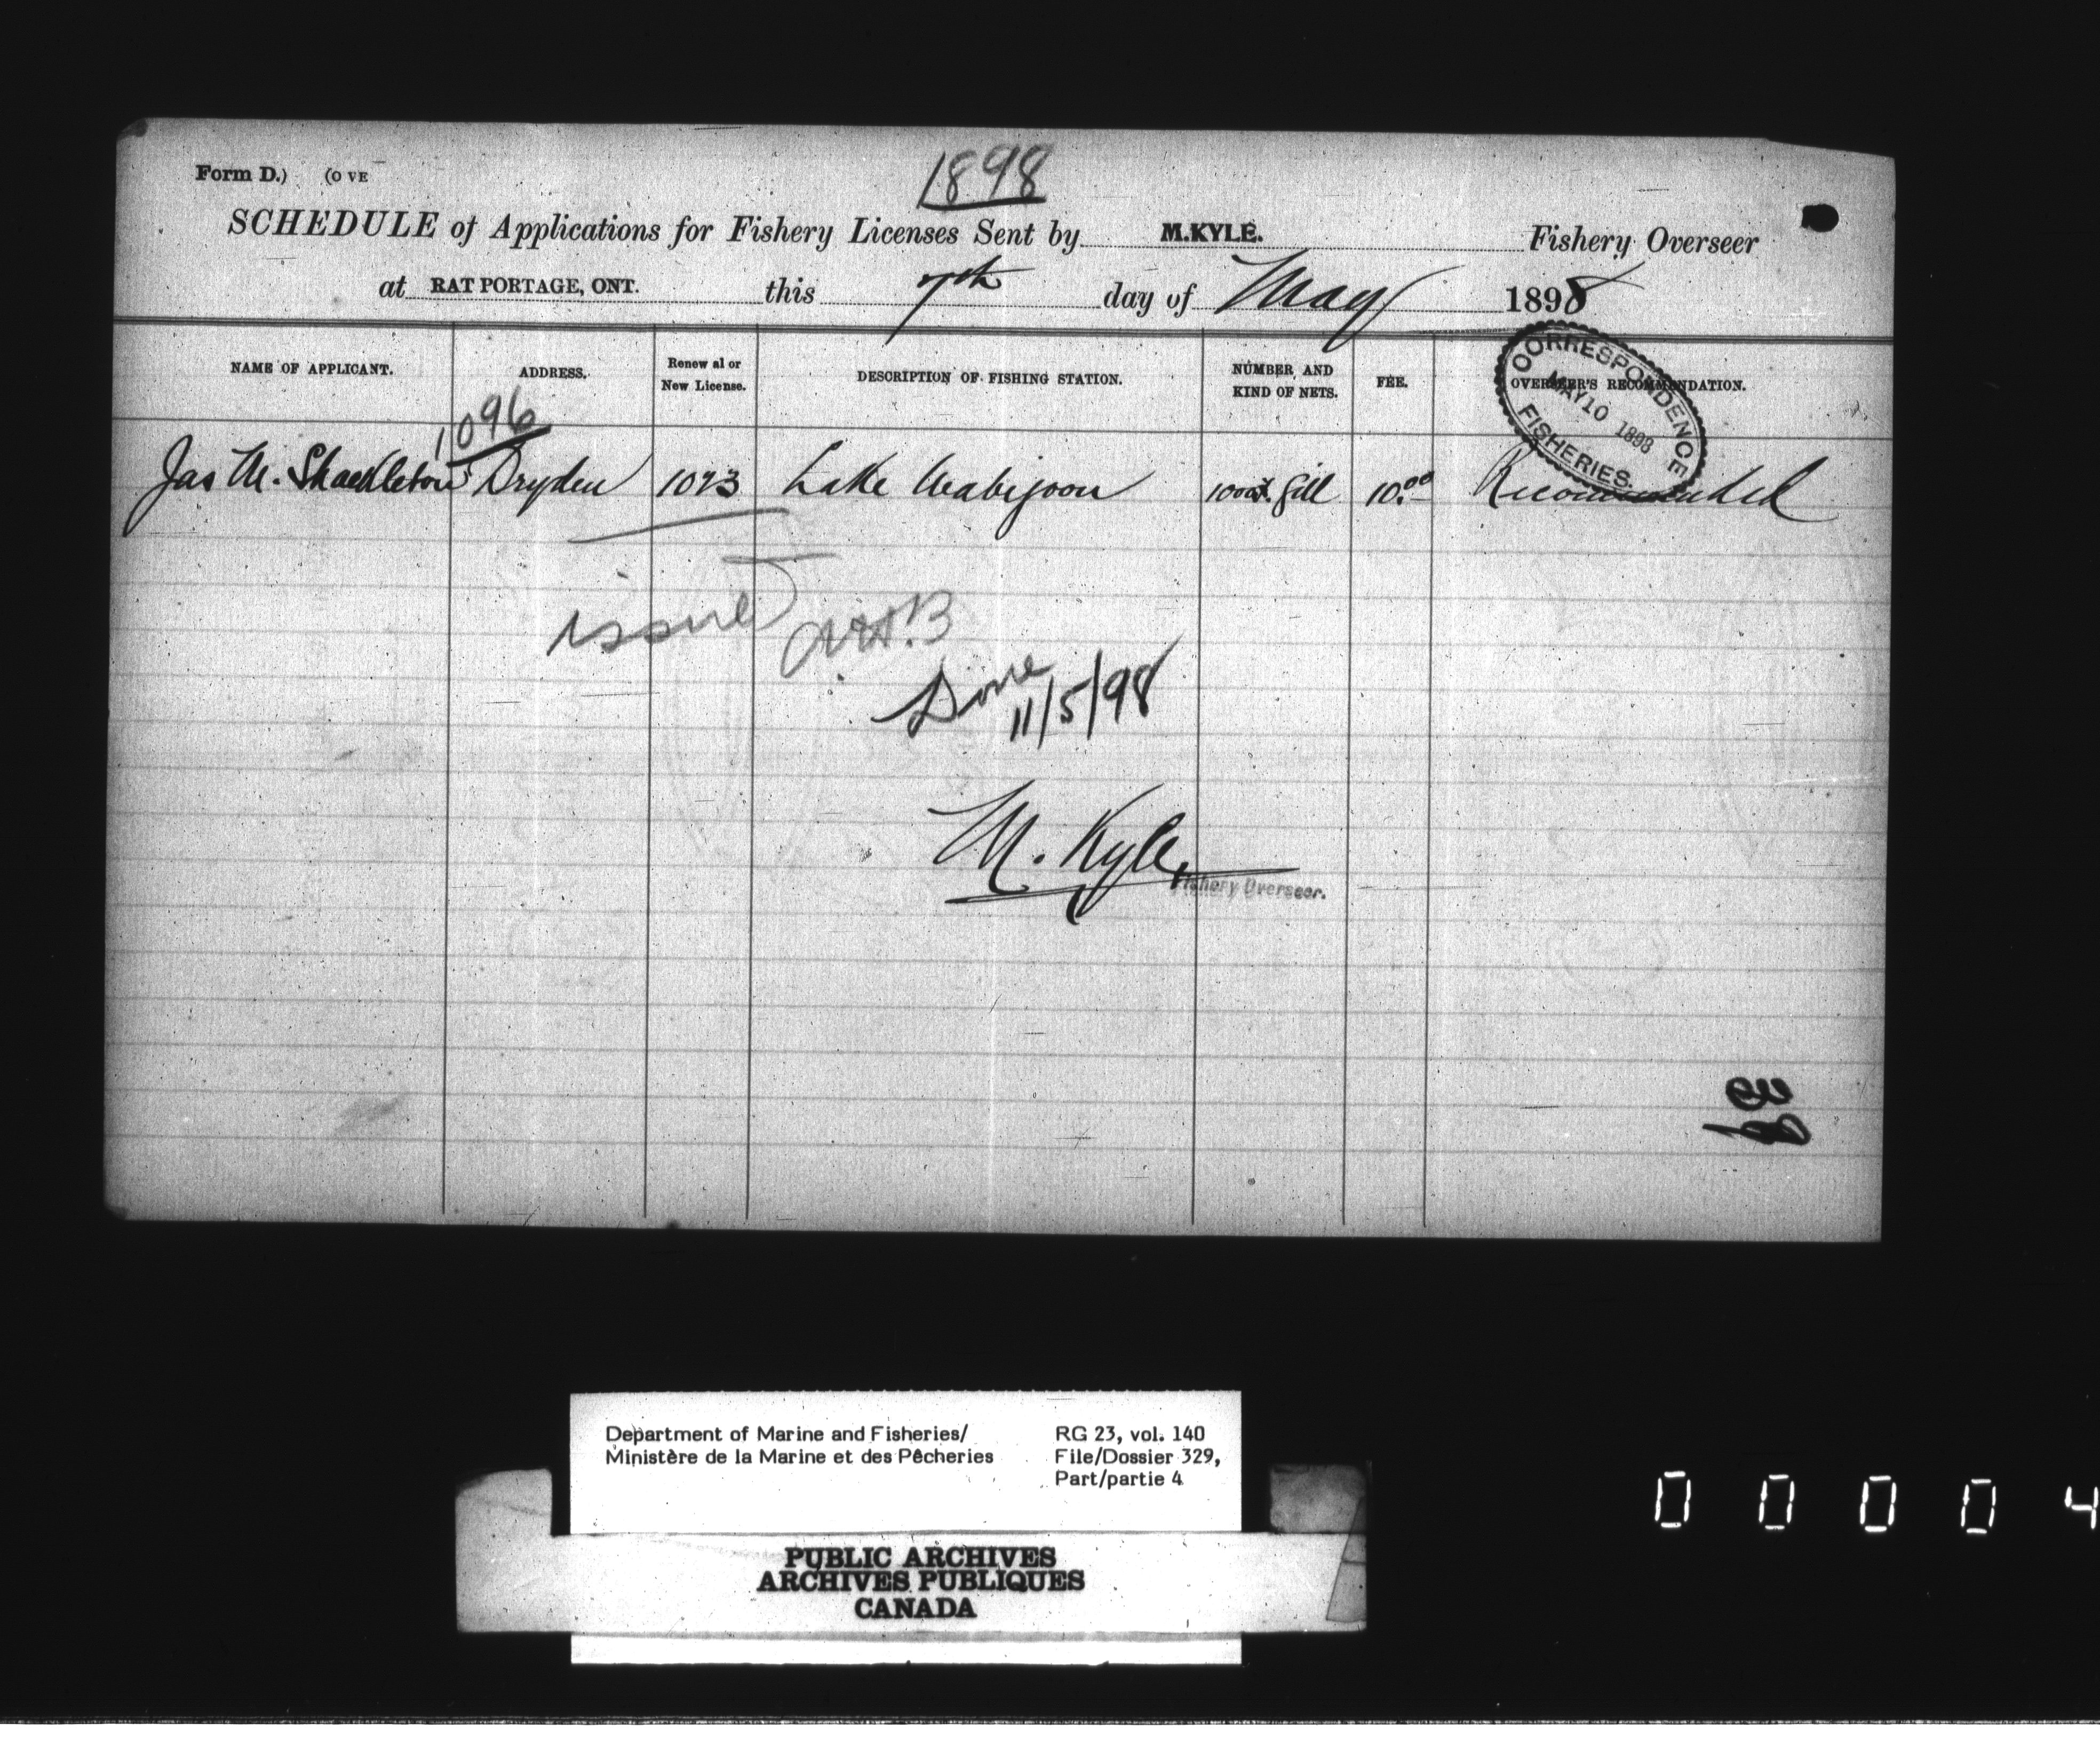 1898
Form D.) (O VE
SCHEDULE of Applications for Fishery Licenses Sent by M.KYLE. Fishery Overseer
at RAT PORTAGE, ONT. this 7th day of May 1898
NAME OF APPLICANT. ADDRESS. Renew al or New License. DESCRIPTION OF FISHING STATION. NUMBER AND KIND OF NETS. FEE. OVERSEER'S RECOMMENDATION.
CORRESPONDENCE
MAY 10 1898
FISHERIES.
1096
Jas M. Shackleton Dryden 1023 Lake Wabigoon 1000 ft. Gill 10.00 Recommended
issue
Done
11/5/98
M. Kyle,
Fishery Overseer.
Department of Marine and Fisheries/ RG 23, vol. 140
Ministère de la Marine et des Pêcheries File/Dossier 329,
Part/partie 4
PUBLIC ARCHIVES
ARCHIVES PUBLIQUES
CANADA
0 0 0 0 4